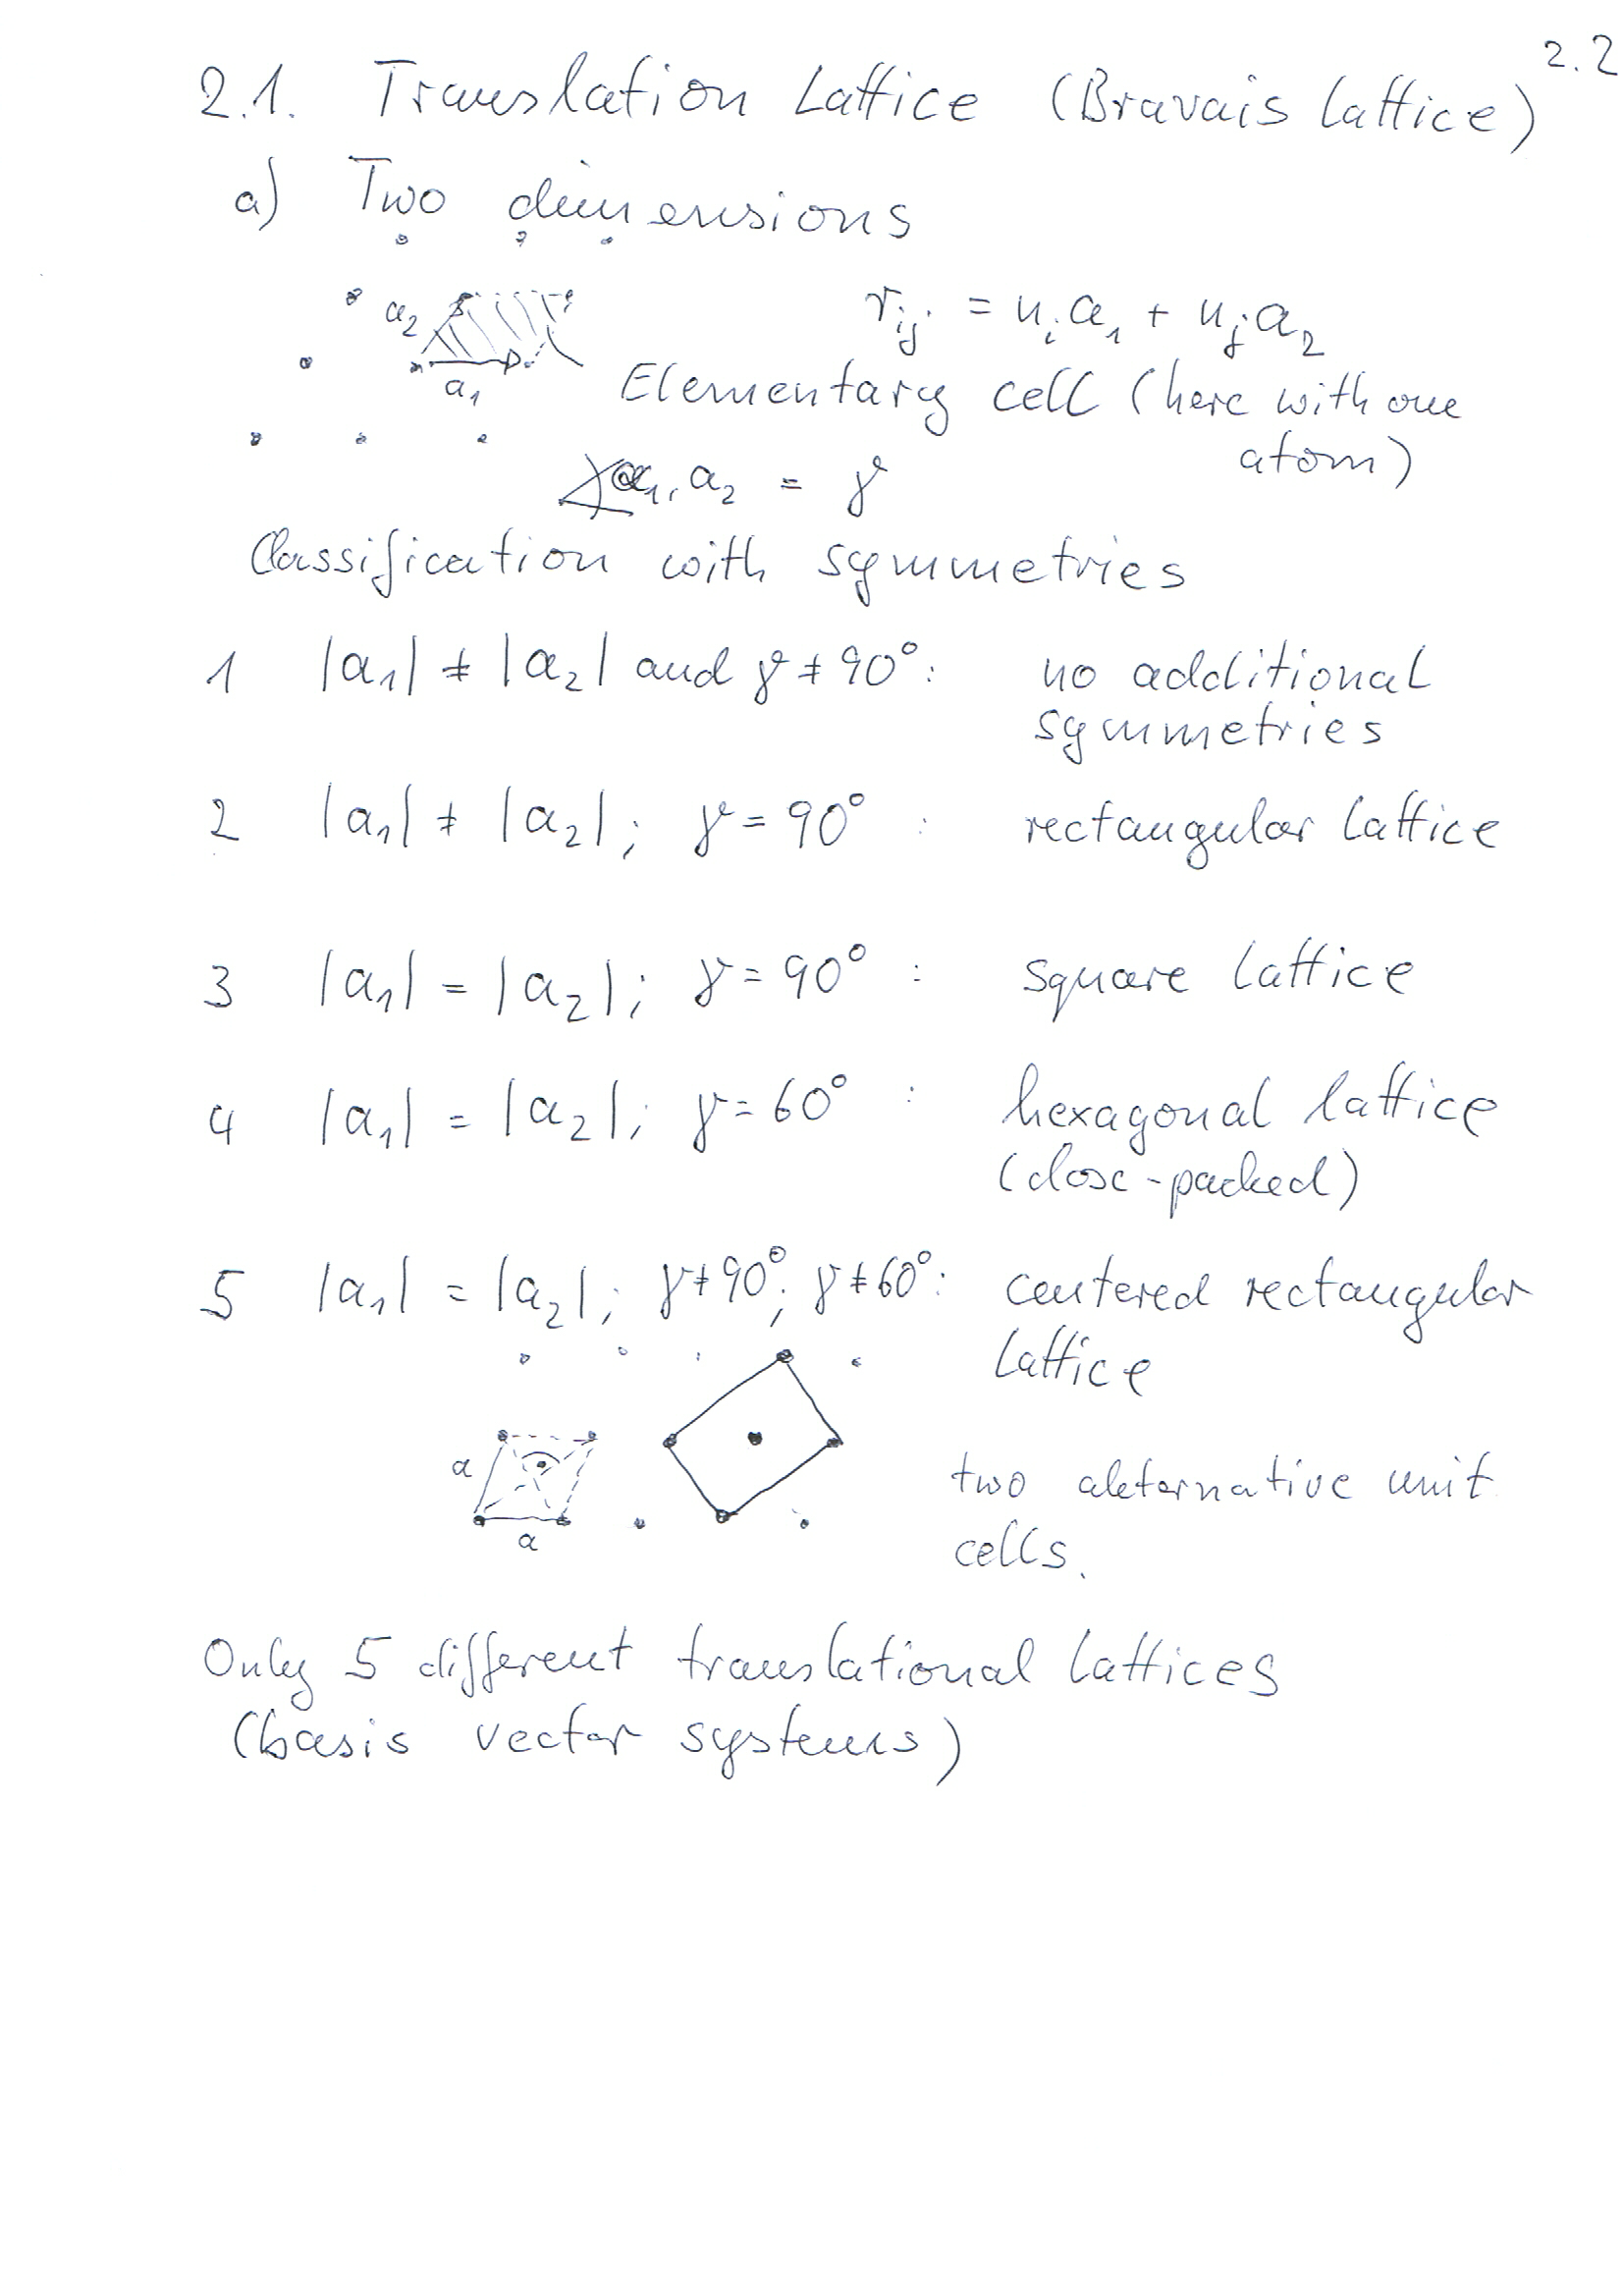 2.2
2.1. Translation Lattice (Bravais lattice)
a) Two dimensions
a₂
a₁
r_ij = n_i a₁ + n_j a₂
Elementary cell (here with one
atom)
∡ a₁, a₂ = γ
Classification with symmetries
1 |a₁| ≠ |a₂| and γ ≠ 90°: no additional
symmetries
2 |a₁| ≠ |a₂|; γ = 90° : rectangular lattice
3 |a₁| = |a₂|; γ = 90° : square lattice
4 |a₁| = |a₂|; γ = 60° : hexagonal lattice
(close-packed)
5 |a₁| = |a₂|; γ ≠ 90°; γ ≠ 60°: centered rectangular
lattice
a
a
two alternative unit
cells.
Only 5 different translational lattices
(basis vector systems)